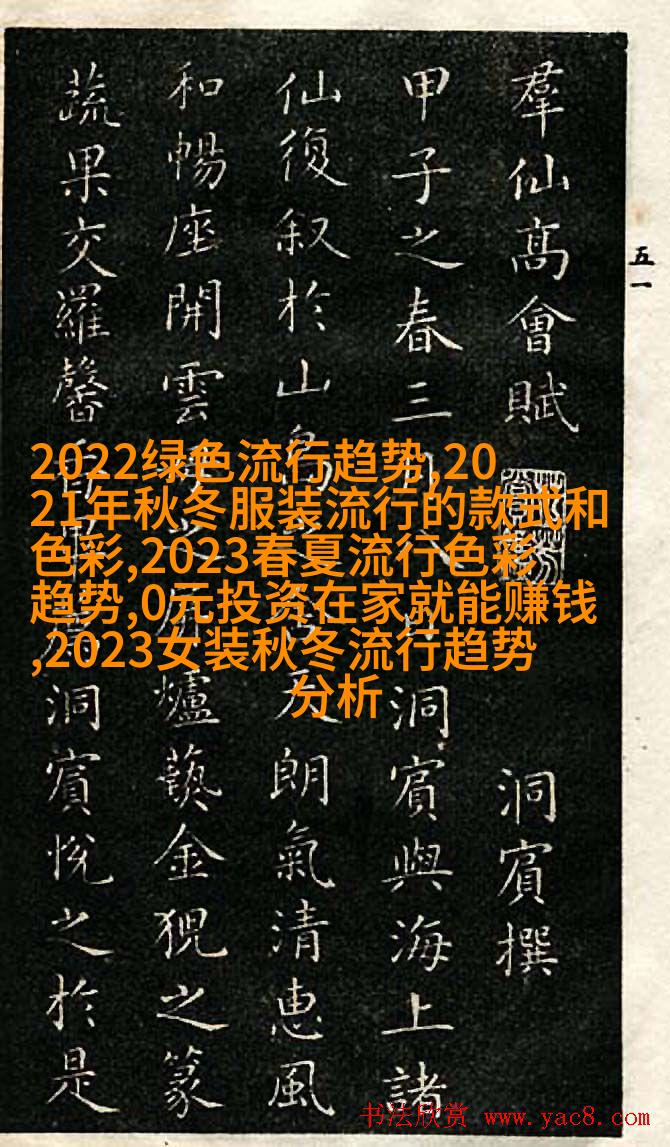 羣仙髙會賦
洞賓撰
甲子之春三
洞賓與海上諸
仙復叙於山島
朗氣清惠風
和暢座開雲
爐藝金猊之篆
蔬果交羅馨
洞賓悅之於是
五一
2022绿色流行趋势,20
21年秋冬服装流行的款式和
色彩,2023春夏流行色彩
趋势,0元投资在家就能赚钱
,2023女装秋冬流行趋势
分析
书法欣赏 www.yac8.com